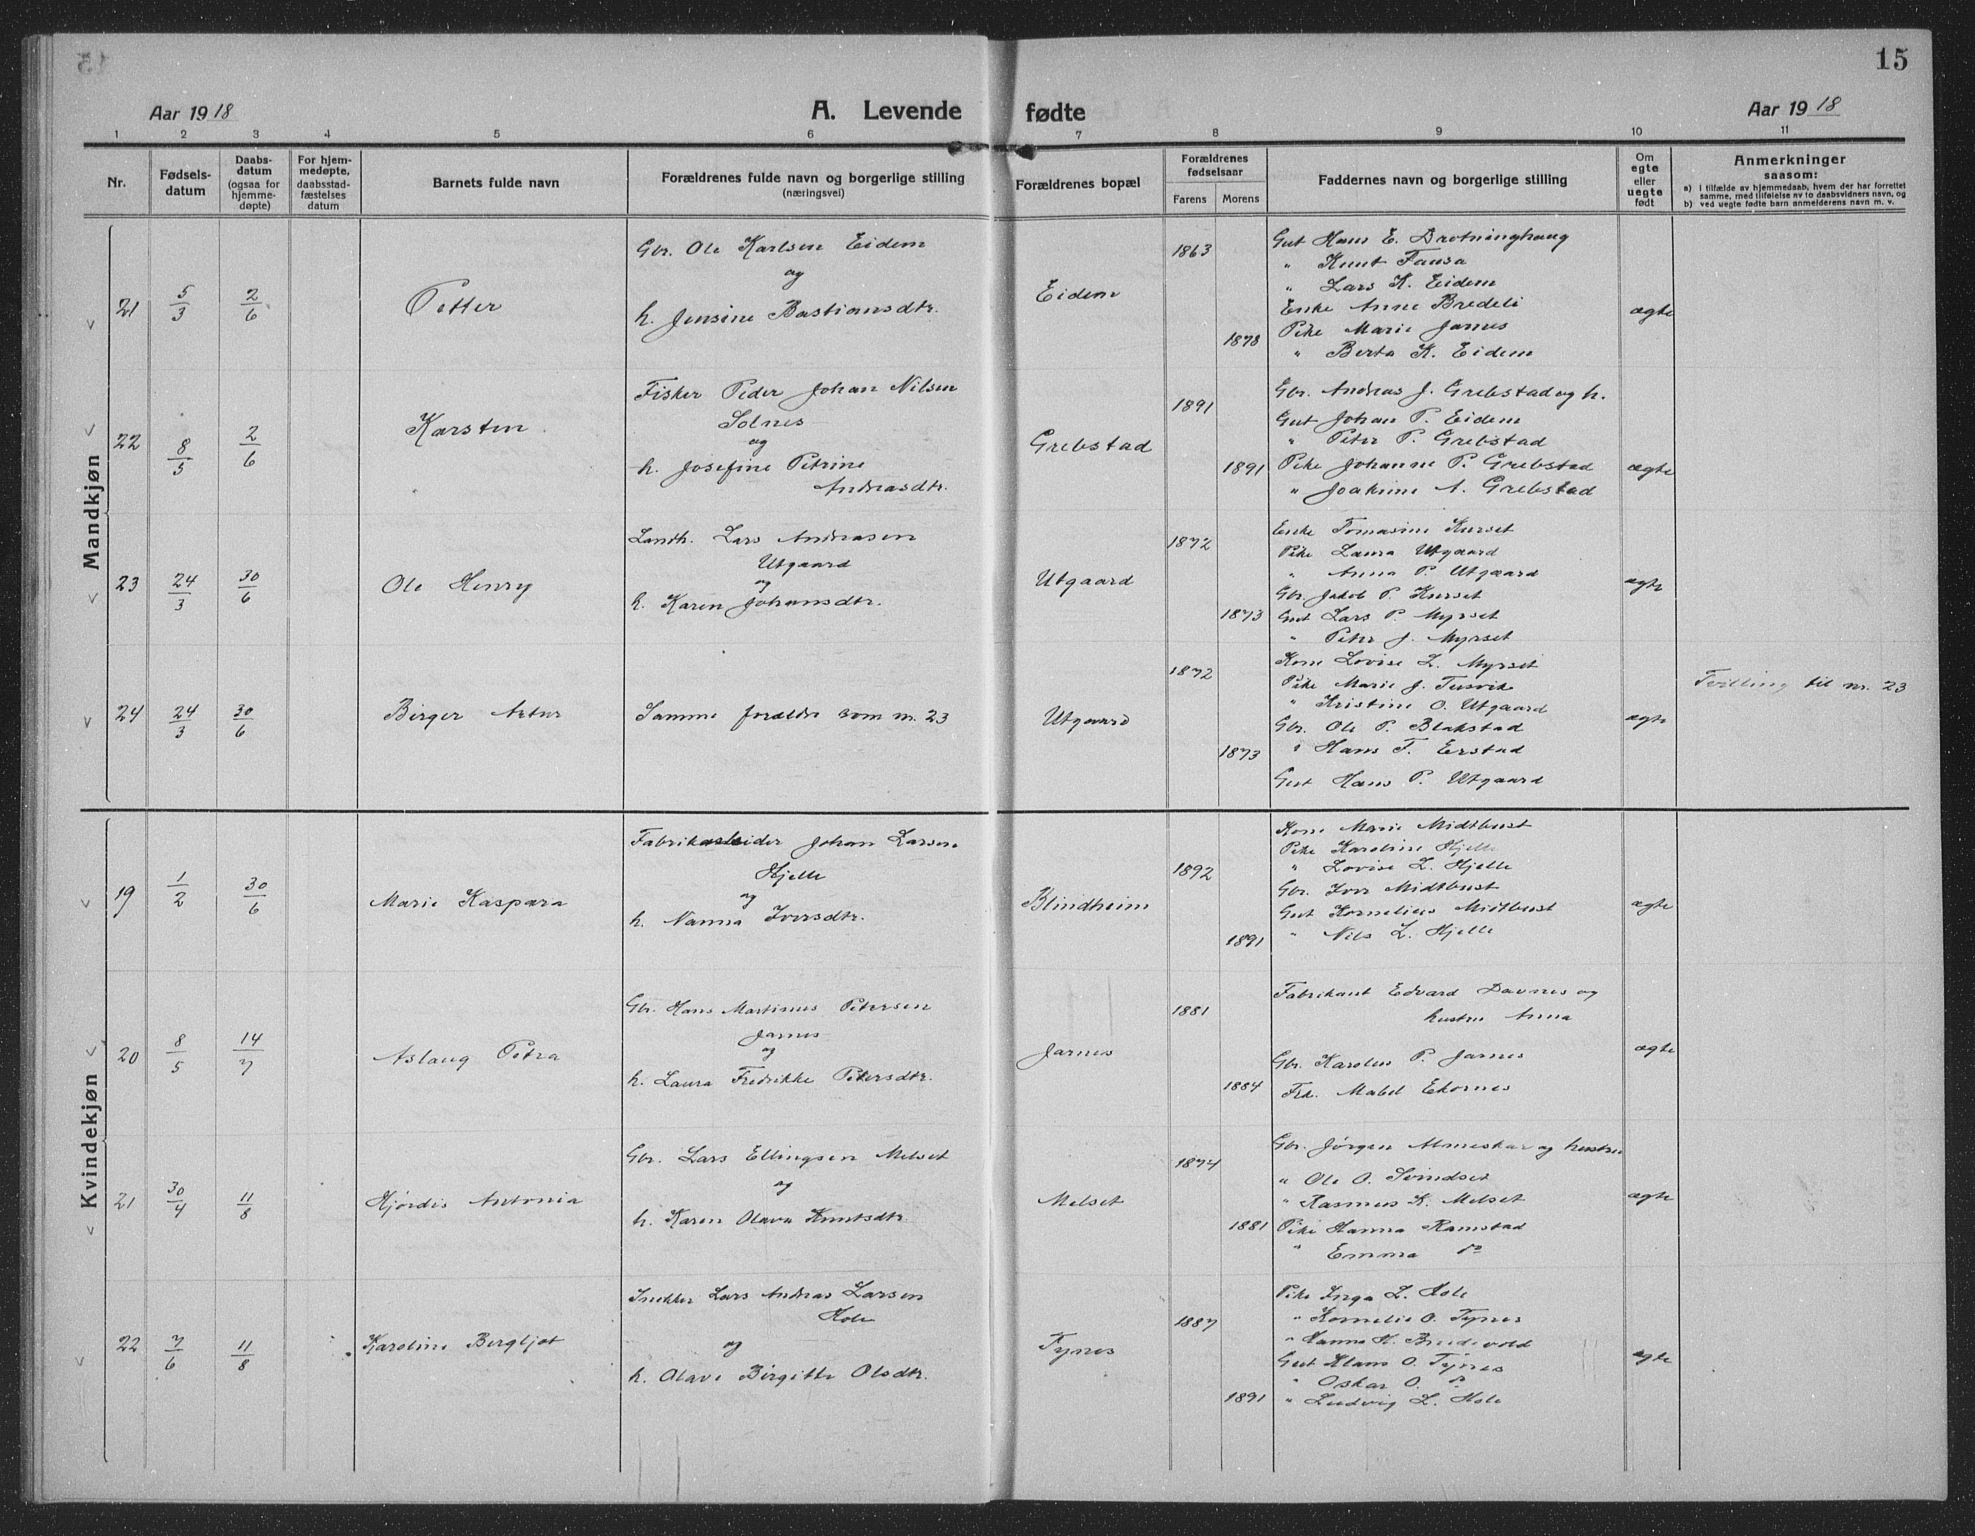 15
Aar 1918
A. Levende fødte
Aar 1918
1 2 3 4 5 6 7 8 9 10 11
Nr.
Fødsels-
datum
Daabs-
datum
(ogsaa for
hjemme-
døpte)
For hjem-
medøpte,
daabsstad-
fæstelses
datum
Barnets fulde navn
Forældrenes fulde navn og borgerlige stilling
(næringsvei)
Forældrenes bopæl
Forældrenes
fødselsaar
Farens Morens
Faddernes navn og borgerlige stilling
Om
egte
eller
uegte
født
Anmerkninger
saasom:
a) i tilfælde av hjemmedaab, hvem der har forrettet
samme, med tilføielse av to daabsvidners navn, og
b) ved uegte fødte barn anmelderens navn m. v.
Mandkjøn
21 5/3 2/6 Petter
Gbr. Ole Karlsen Eidem
og
h. Jensine Bastiansdtr.
Eidem
1863
1878
Gut Hans E. Drotninghaug
" Knut Fausa
" Lars K. Eidem
Enke Anne Bredeli
Pike Marie Jarnes
" Berta K. Eidem
ægte
22 8/5 2/6 Karsten
Fisker Peder Johan Nilsen
Solnes
og
h. Josefine Petrine
Andreasdtr.
Grebstad
1891
1891
Gbr. Andreas J. Grebstad og h.
Gut Johan P. Eidem
" Peter P. Grebstad
Pike Johanne P. Grebstad
" Joakime A. Grebstad
ægte
23 24/3 30/6 Ole Henry
Landh. Lars Andreasen
Utgaard
og
h. Karen Johansdtr.
Utgaard
1872
1873
Enke Tomasine Kurset
Pike Laura Utgaard
" Anna P. Utgaard
Gbr. Jakob P. Kurset
Gut Lars P. Myrset
" Peter J. Myrset
ægte
24 24/3 30/6 Birger Artur
Samme forældre som nr. 23
Utgaard
1872
1873
Kone Lovise L. Myrset
Pike Marie J. Tusvik
" Kristine O. Utgaard
Gbr. Ole P. Blakstad
" Hans T. Erstad
Gut Hans P. Utgaard
ægte
Tvilling til nr. 23
Kvindekjøn
19 1/2 30/6 Marie Kaspara
Fabrikarbeider Johan Larsen
Hjelle
og
h. Nanna Iversdtr.
Blindheim
1892
1891
Kone Marie Midtbust
Pike Karoline Hjelle
" Lovise L. Hjelle
Gbr. Iver Midtbust
Gut Kornelius Midtbust
" Nils L. Hjelle
ægte
20 8/5 14/7 Aslaug Petra
Gbr. Hans Martinus Petersen
Jarnes
og
h. Laura Fredrikke Petersdtr.
Jarnes
1881
1884
Fabrikant Edvard Davnes og
hustru Anna
Gbr. Karolus P. Jarnes
Frk. Mabel Ekornes
ægte
21 30/4 11/8 Hjørdis Antonia
Gbr. Lars Ellingsen Melset
og
h. Karen Olava Knutsdtr.
Melset
1874
1881
Gbr. Jørgen Almeskar og hustru
" Ole O. Svindset
" Rasmus K. Melset
Pike Hanna Ramstad
" Emma do
ægte
22 7/6 11/8 Karoline Bergljot
Snekker Lars Andreas Larsen
Hole
og
h. Olave Birgitte Olsdtr.
Tynes
1887
1891
Pike Inga L. Hole
" Kornelie O. Tynes
" Hanna H. Bredevold
Gut Klaus O. Tynes
" Oskar O. do
" Ludvig L. Hole
ægte